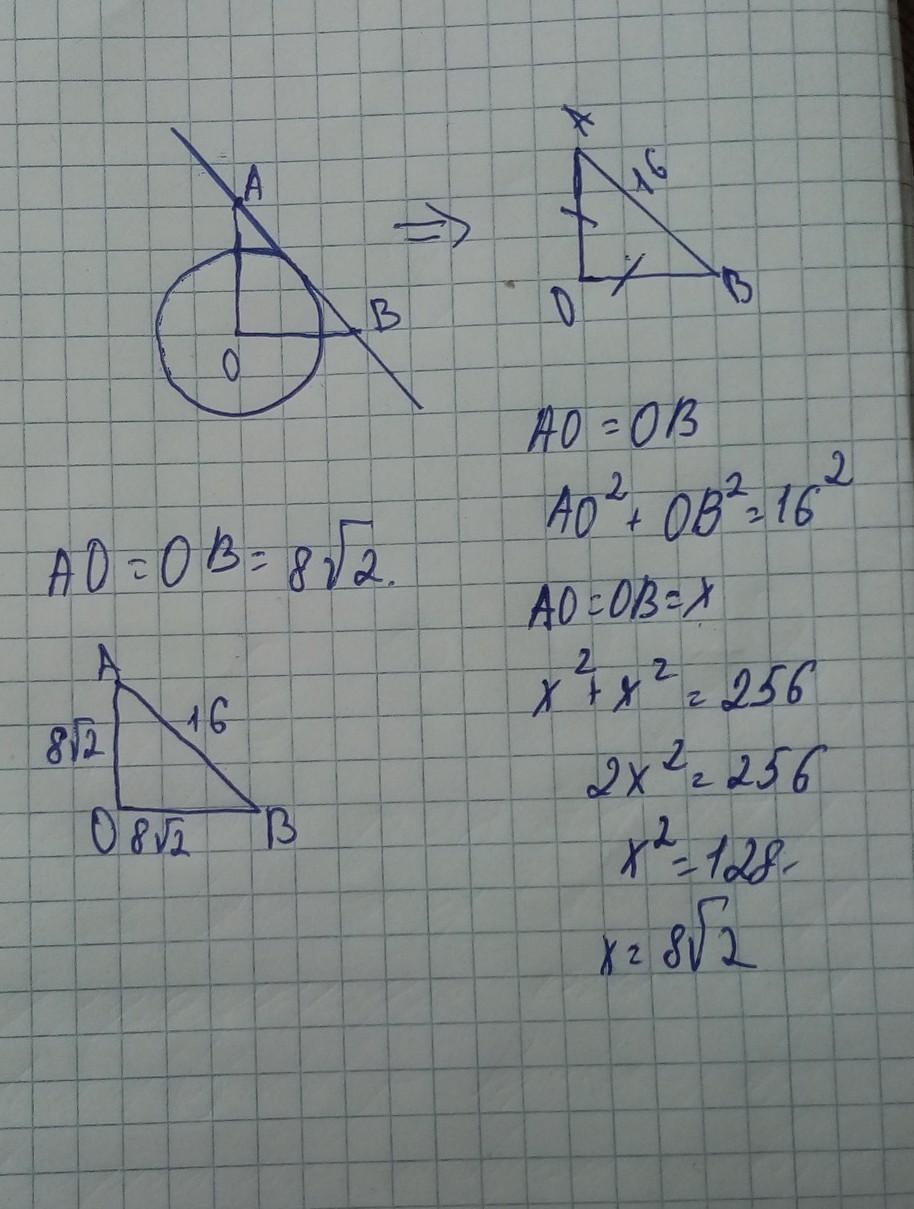 A
B
O
⇒
A
16
O
B
AO = OB
AO² + OB² = 16²
AO = OB = x
x² + x² = 256
2x² = 256
x² = 128
x = 8√2
AO = OB = 8√2.
A
8√2
16
O
8√2
B